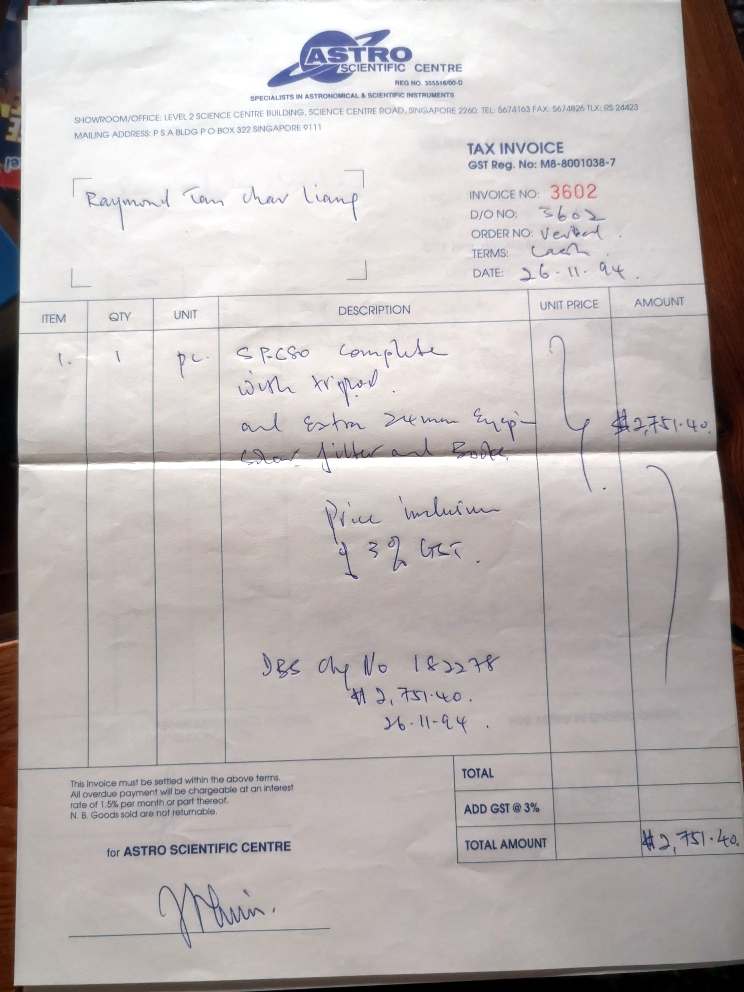 ASTRO
SCIENTIFIC CENTRE
REG NO. 355516/00-D
SPECIALISTS IN ASTRONOMICAL & SCIENTIFIC INSTRUMENTS
SHOWROOM/OFFICE: LEVEL 2 SCIENCE CENTRE BUILDING, SCIENCE CENTRE ROAD, SINGAPORE 2260. TEL: 5674163 FAX: 5674826 TLX: RS 24423
MAILING ADDRESS: P S A BLDG P O BOX 322 SINGAPORE 9111
TAX INVOICE
GST Reg. No: M8-8001038-7
Raymond Tan Chor Liang
INVOICE NO: 3602
D/O NO: 3602
ORDER NO: Verbal.
TERMS: Cash.
DATE: 26.11.94.
ITEM QTY UNIT DESCRIPTION UNIT PRICE AMOUNT
1. 1 pc. SP-C80 complete
with tripod.
and Extra 24mm Eyep- $2,751.40.
filter and Books
Price inclusive
of 3% GST.
DBS Chq No 182278
$2,751.40.
26.11.94.
This invoice must be settled within the above terms.
All overdue payment will be chargeable at an interest
rate of 1.5% per month or part thereof.
N. B. Goods sold are not returnable.
TOTAL
ADD GST @ 3%
TOTAL AMOUNT $2,751.40.
for ASTRO SCIENTIFIC CENTRE